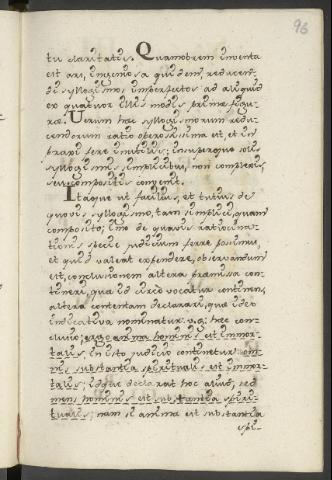 96
tu claritatis. Quamobrem inventa
est ars, ingeniosa quidem, reducen-
di syllogismos imperfectos ad aliquem
ex quatuor illis modis primæ figu-
ræ. Verum hæc syllogismorum redu-
cendorum ratio operosissima est et in
praxi fere inutilis; insuperque solis
syllogismis simplicibus, non complexis,
seu compositis convenit.
Itaque ut facilius, et tutius de
quovis syllogismo, tam simplici, quam
composito, imo de quavis ratiocina-
tionis specie judicium ferre possimus,
et quid valeat expendere, observandum
est, conclusionem altera præmissa con-
tineri, quæ id circo vocatur continens,
altera contentam declarari, quæ ideo
indicativa nominatur. v.g: hæc con-
clusio; ergo anima hominis est immor-
talis, in isto judicio continetur: om-
nis substantia spiritualis est immor-
talis; idque declarat hoc aliud; sed
mens hominis est substantia spiri-
tualis; nam si anima est substantia
spi-